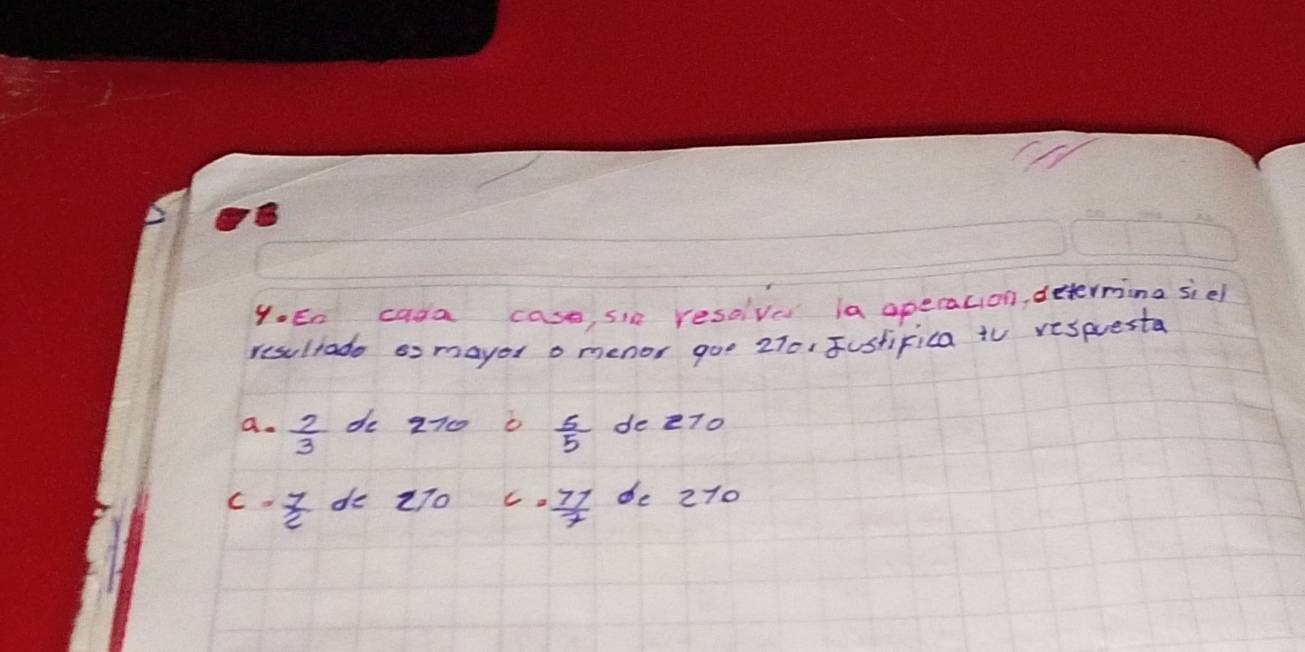 4. En cada caso, sin resolver la operacion, determina si el
resultado es mayor o menor que 270. Justifica tu respuesta
a. 2/3 de 270 b 6/5 de 270
c. 7/2 de 270 c. 11/7 de 270